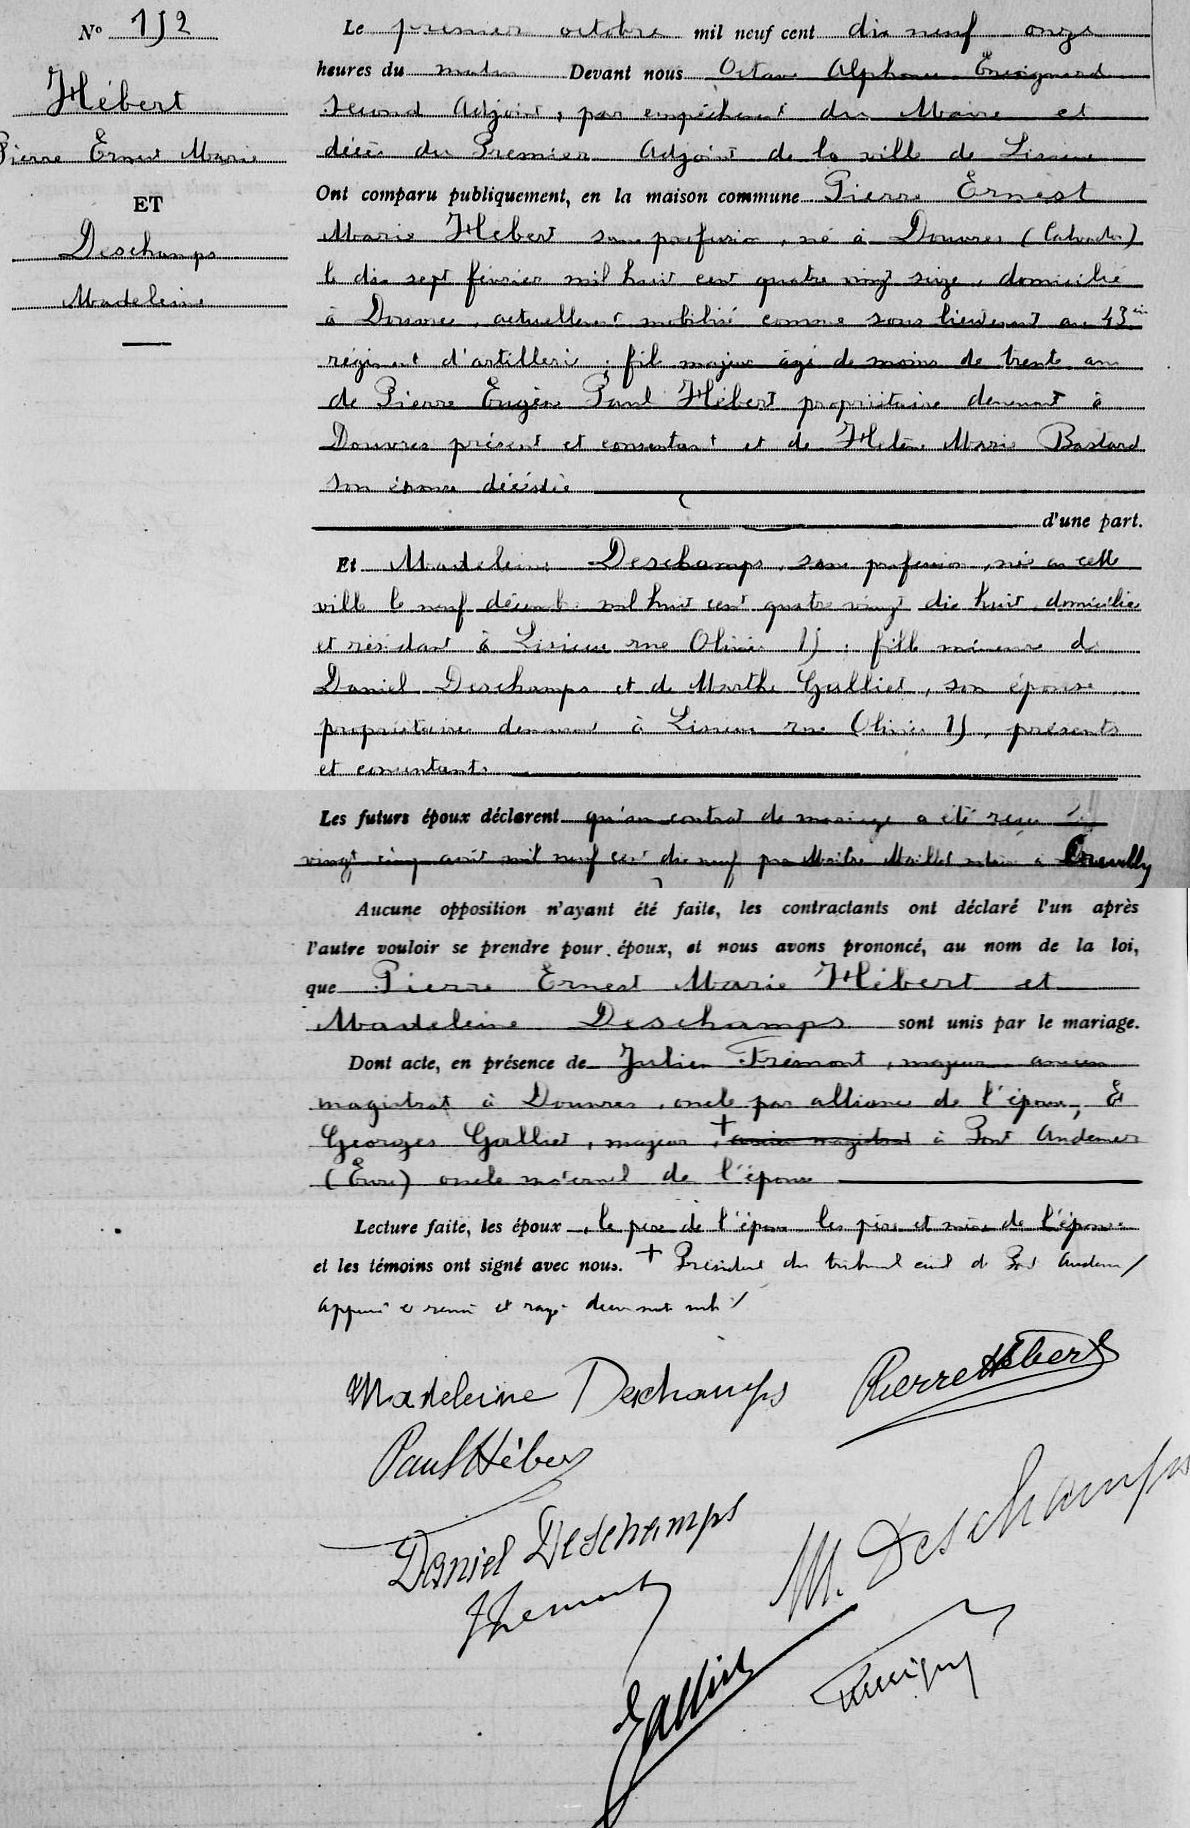 N° 152
Hébert
Pierre Ernest Marie
ET
Deschamps
Madeleine
Le premier octobre mil neuf cent dix neuf onze
heures du matin Devant nous Octave Alphonse
second Adjoint, par empêchement du Maire et
décès du Premier Adjoint de la ville de Lisieux
Ont comparu publiquement, en la maison commune Pierre Ernest
Marie Hébert sans profession, né à Douvres (Calvados)
le dix sept février mil huit cent quatre vingt seize, domicilié
à Douvres, actuellement mobilisé comme sous lieutenant au 43e
régiment d'artillerie ; fils majeur âgé de moins de trente ans
de Pierre Eugène Paul Hébert propriétaire demeurant à
Douvres présent et consentant et de Hélène Marie Bastard
son épouse décédée
d'une part.
Et Madeleine Deschamps, sans profession, née en cette
ville le neuf décembre mil huit cent quatre vingt dix huit, domiciliée
et résidant à Lisieux rue Olivier 15 ; fille mineure de
Daniel Deschamps et de Marthe Galliet, son épouse
propriétaires demeurant à Lisieux rue Olivier 15, présents
et consentants
Les futurs époux déclarent qu'un contrat de mariage a été reçu le
vingt cinq août mil neuf cent dix neuf par Maître Maillet notaire à Creully
Aucune opposition n'ayant été faite, les contractants ont déclaré l'un après
l'autre vouloir se prendre pour époux, et nous avons prononcé, au nom de la loi,
que Pierre Ernest Marie Hébert et
Madeleine Deschamps sont unis par le mariage.
Dont acte, en présence de Julien Frémont, majeur ancien
magistrat à Douvres, oncle par alliance de l'époux, &
Georges Galliet, majeur, + ancien magistrat à Pont Audemer
(Eure) oncle maternel de l'épouse
Lecture faite, les époux, le père de l'époux les père et mère de l'épouse
et les témoins ont signé avec nous. + Président du tribunal civil de Pont Audemer /
Approuvé le renvoi et rayé deux mots nuls /
Madeleine Deschamps Pierre Hébert
Paul Hébert
Daniel Deschamps M. Deschamps
JFremont
Galliet